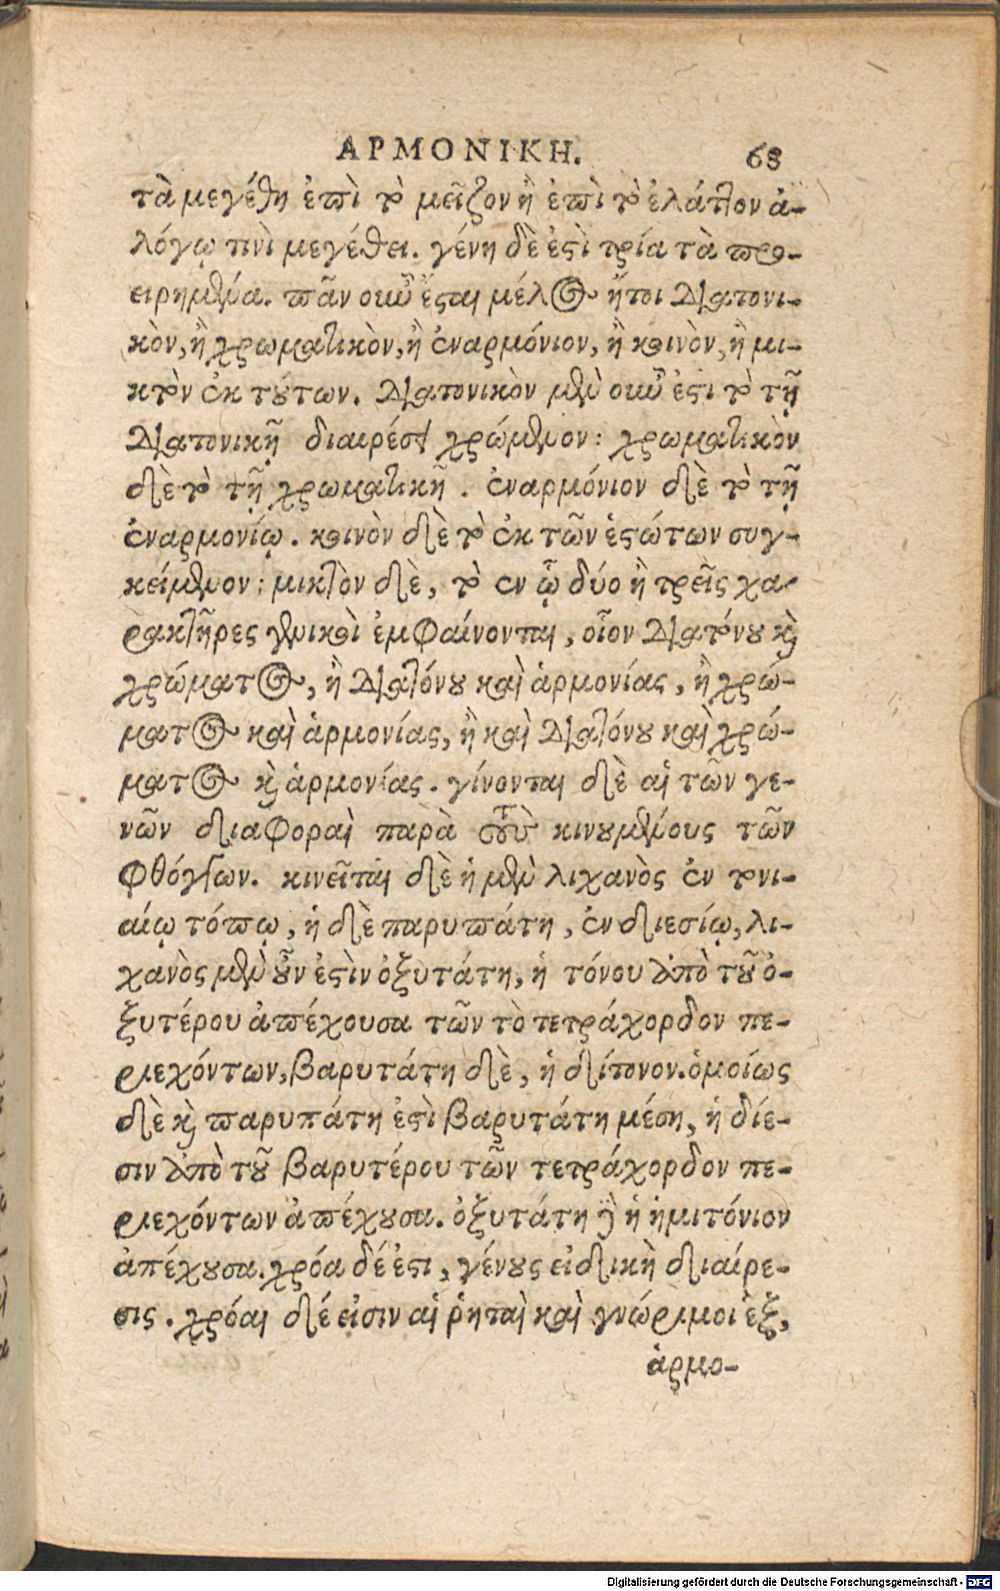 ΑΡΜΟΝΙΚΗ. 68
τὰ μεγέθη ἐπὶ τὸ μεῖζον ἢ ἐπὶ τὸ ἔλαττον ἀ-
λόγῳ τινὶ μεγέθει. γένη δὲ ἐστὶ τρία τὰ προ-
ειρημένα. πᾶν οὖν ἔσται μέλος ἤτοι διατονι-
κὸν, ἢ χρωματικὸν, ἢ ἐναρμόνιον, ἢ κοινὸν, ἢ μι-
κτὸν ἐκ τούτων. διατονικὸν μὲν οὖν ἐστι τὸ τῇ
διατονικῇ διαιρέσει χρώμενον: χρωματικὸν
δὲ τὸ τῇ χρωματικῇ. ἐναρμόνιον δὲ τὸ τῇ
ἐναρμονίῳ. κοινὸν δὲ τὸ ἐκ τῶν ἑστώτων συγ-
κείμενον: μικτὸν δὲ, τὸ ἐν ᾧ δύο ἢ τρεῖς χα-
ρακτῆρες γενικοὶ ἐμφαίνονται, οἷον διατόνου καὶ
χρώματος, ἢ διατόνου καὶ ἁρμονίας, ἢ χρώ-
ματος καὶ ἁρμονίας, ἢ καὶ διατόνου καὶ χρώ-
ματος καὶ ἁρμονίας. γίνονται δὲ αἱ τῶν γε-
νῶν διαφοραὶ παρὰ τοὺς κινουμένους τῶν
φθόγγων. κινεῖται δὲ ἡ μὲν λιχανὸς ἐν τονι-
αίῳ τόπῳ, ἡ δὲ παρυπάτη, ἐν διεσίῳ, λι-
χανὸς μὲν οὖν ἐστὶν ὀξυτάτη, ἡ τόνου ἀπὸ τοῦ ὀ-
ξυτέρου ἀπέχουσα τῶν τὸ τετράχορδον πε-
ριεχόντων, βαρυτάτη δὲ, ἡ δίτονον. ὁμοίως
δὲ καὶ παρυπάτη ἐστὶ βαρυτάτη μέση, ἡ δίε-
σιν ἀπὸ τοῦ βαρυτέρου τῶν τετράχορδον πε-
ριεχόντων ἀπέχουσα. ὀξυτάτη δὲ ἡ ἡμιτόνιον
ἀπέχουσα. χρόα δέ ἐστι, γένους εἰδικὴ διαίρε-
σις. χρόαι δέ εἰσιν αἱ ῥηταὶ καὶ γνώριμοι ἓξ,
ἁρμο-
Digitalisierung gefördert durch die Deutsche Forschungsgemeinschaft - DFG